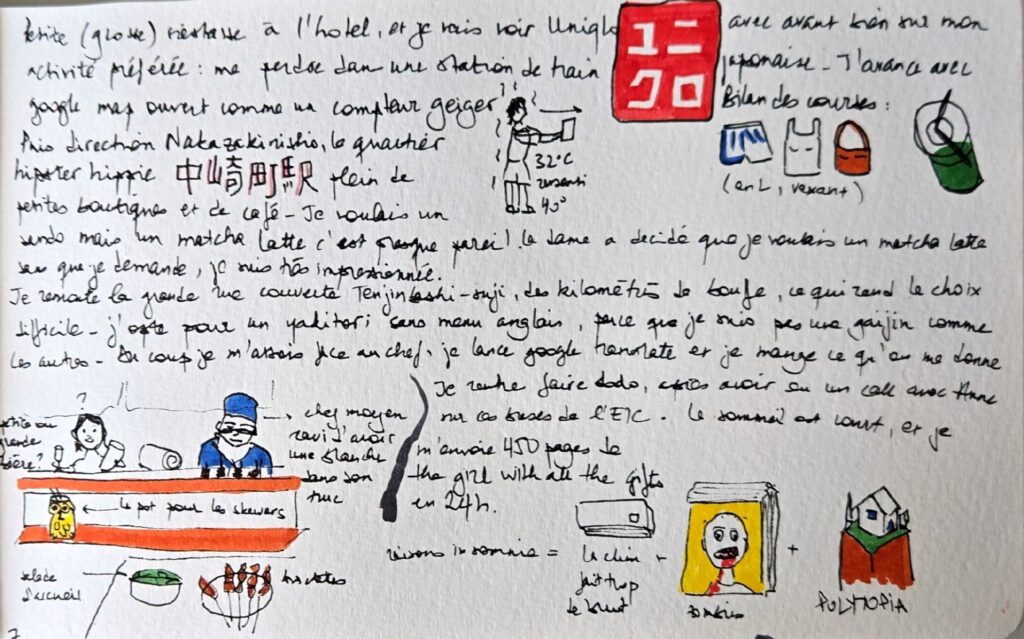 Petite (grosse) sieste à l'hotel, et je vais voir Uniqlo
ユニ
クロ
avec avant bien sur mon
activité préférée : me perdre dans une station de train
japonaise - J'avance avec
google map ouvert comme un compteur geiger
Bilan des courses :
Puis direction Nakazakinishi, le quartier
hipster hippie 中崎町駅 plein de
32°C
ressenti
40°
(en L, vexant)
petites boutiques et de café - Je voulais un
sando mais un matcha latte c'est presque pareil la dame a decidé que je voulais un matcha latte
sans que je demande, je suis très impressionnée.
Je remonte la grande rue couverte Tenjinbashi-suji, des kilomètres de bouffe, ce qui rend le choix
difficile - j'opte pour un yakitori sans menu anglais, parce que je suis pas une gaijin comme
les autres - Du coup je m'assois face au chef, je lance google translate et je mange ce qu'on me donne
?
petite ou
grande
bière?
chef moyen
ravi d'avoir
une blanche
dans son
truc
le pot pour les skewers
salade
d'accueil
Je rentre faire dodo, après avoir eu un call avec Anne
sur ces buses de l'ETC. Le sommeil est court, et je
m'envoie 450 pages de
the girl with all the gifts
en 24h.
raisons insomnie =
la clim
fait trop
de bruit
+
zombies
+
POLYTOPIA
7